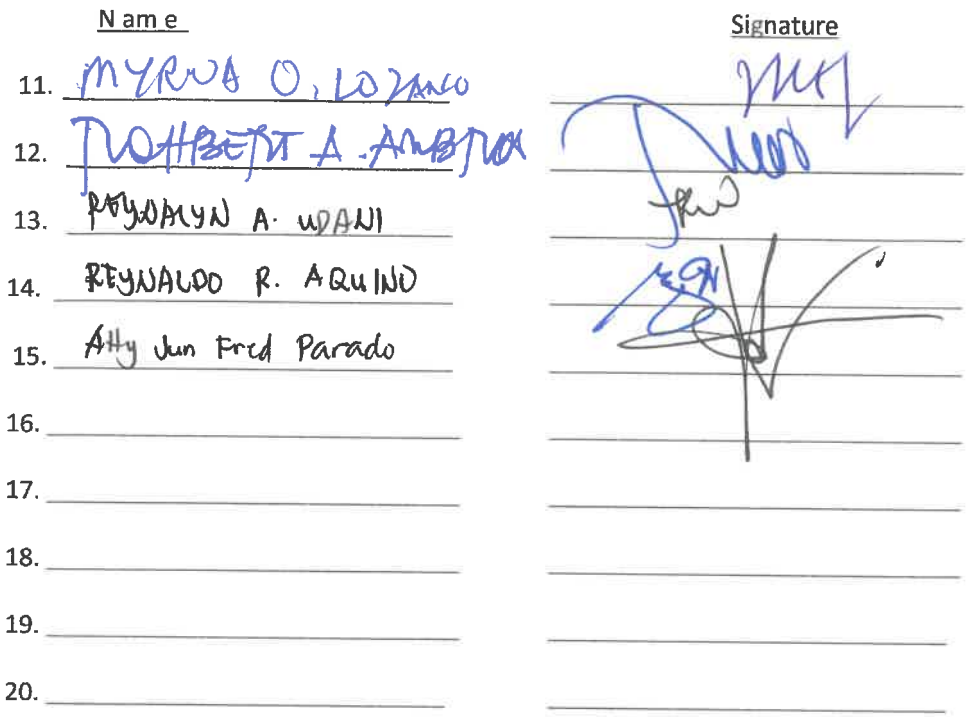 Name Signature
11. MYRNA O. LOZANCO
12. ROHBERT A.
13. REYNALYN A. UDANI
14. REYNALDO R. AQUINO
15. Atty Jun Fred Parado
16.
17.
18.
19.
20.